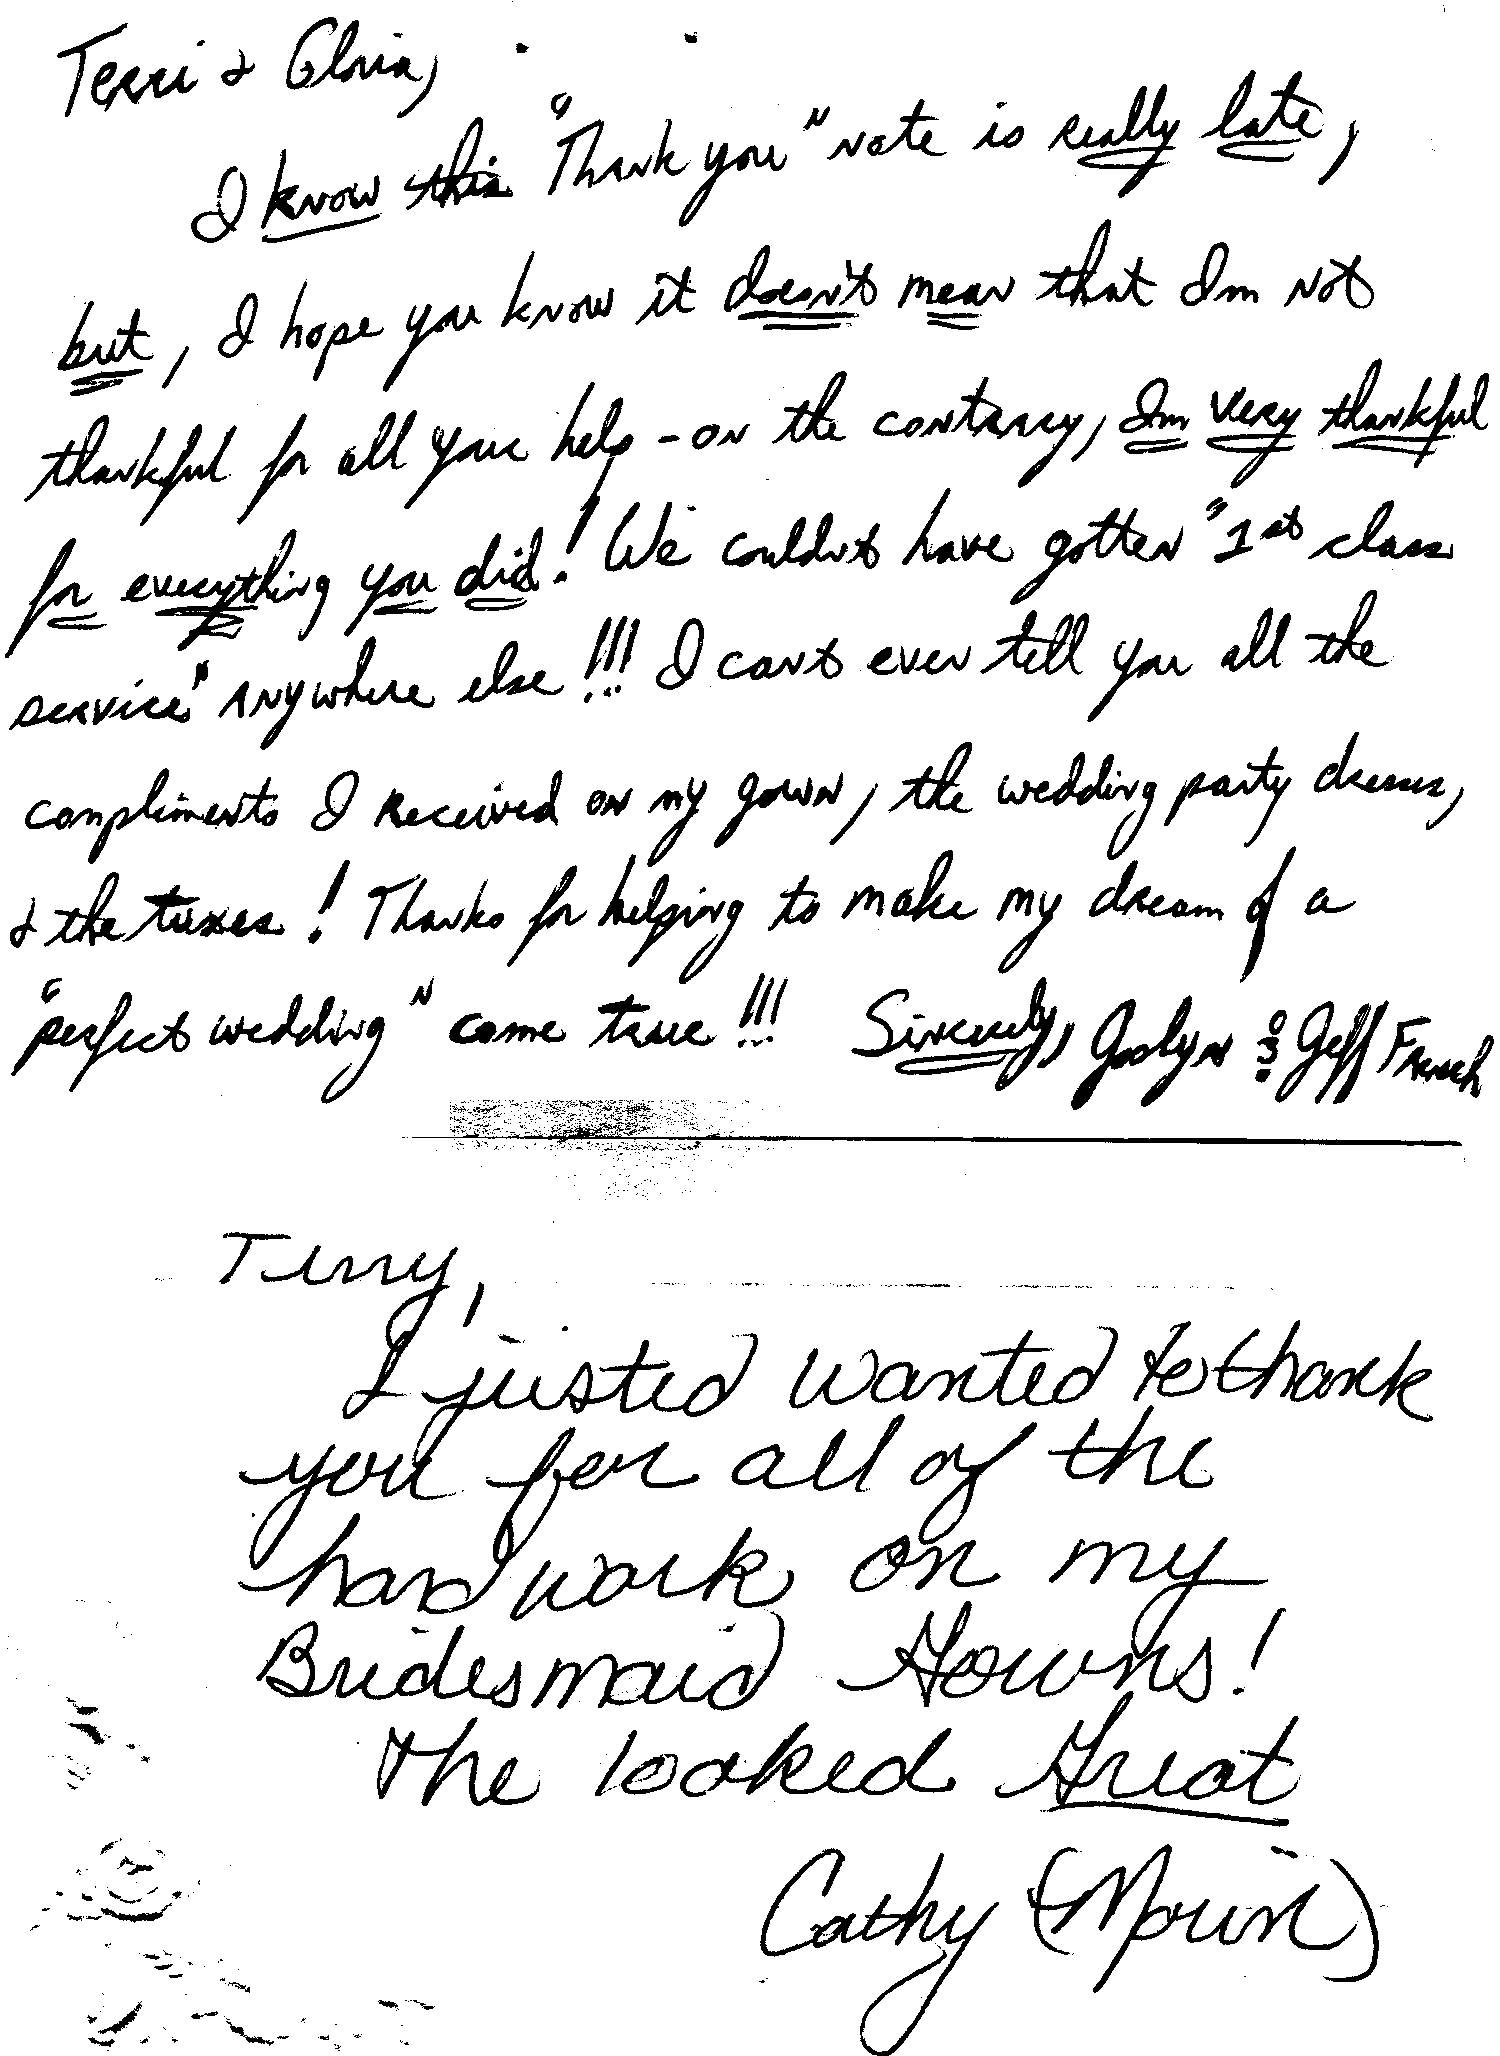 Terri & Gloria,
I know this "Thank you" note is really late,
but, I hope you know it doesn't mean that I'm not
thankful for all your help - on the contrary, I'm very thankful
for everything you did! We couldn't have gotten "1st class
service" anywhere else!!! I can't ever tell you all the
compliments I received on my gown, the wedding party dresses,
& the tuxes! Thanks for helping to make my dream of a
"perfect wedding" come true!!! Sincerely, Joslyn & Jeff French
Terry,
I justed wanted to thank
you for all of the
hard work on my
Bridesmaid Gowns!
The looked Great
Cathy (Morin)